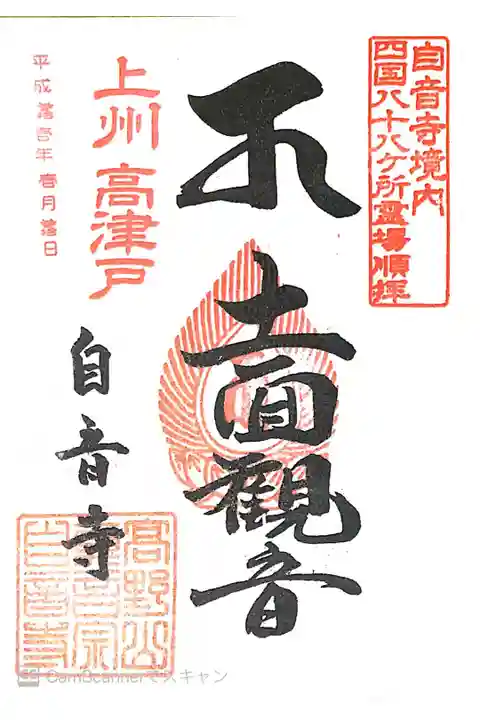 自音寺境内
四国八十八ケ所霊場順拝
十一面觀音
上州 高津戸
自音寺
高野山
真言宗
自音寺
CS CamScannerでスキャン